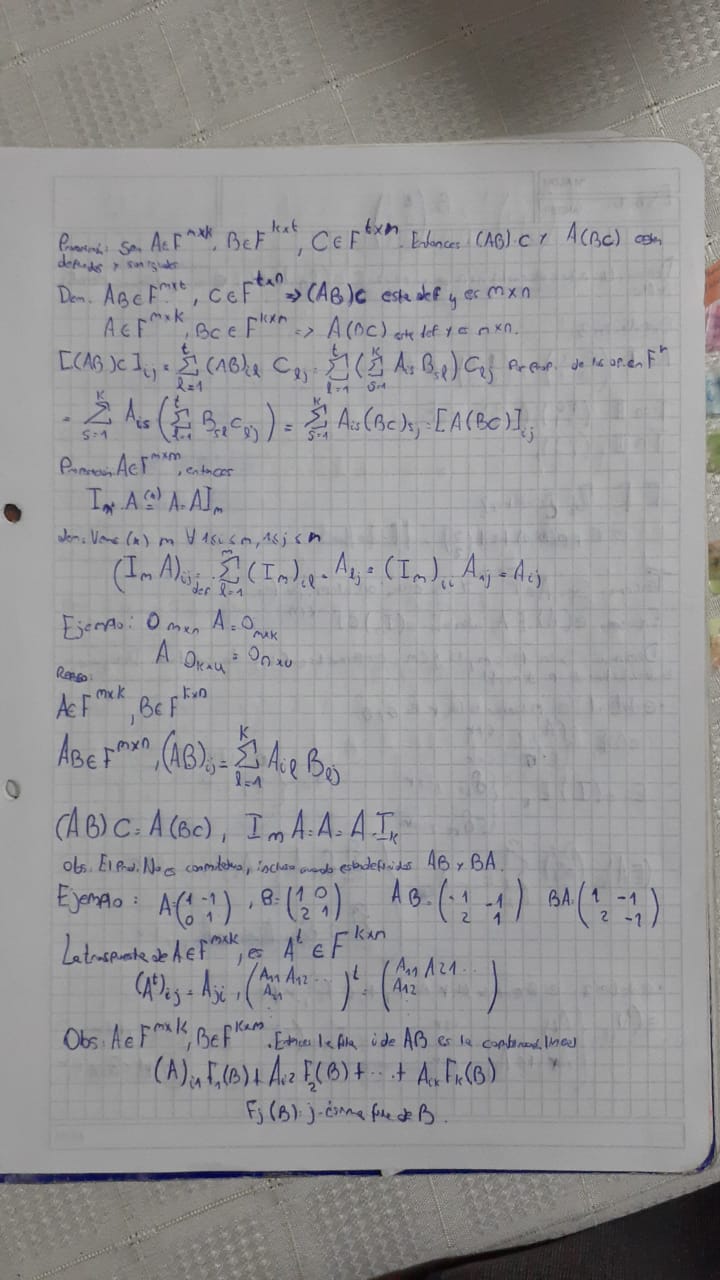 Sean A∈F^{m×k}, B∈F^{k×t}, C∈F^{t×n}. Entonces (AB)·C y A(BC) están
definidos y son iguales
Dem. AB∈F^{m×t}, C∈F^{t×n} ⇒ (AB)C esta def y es m×n
A∈F^{m×k}, BC∈F^{k×n} ⇒ A(BC) este def y es m×n.
[(AB)C]_{ij} = Σ_{l=1}^{t} (AB)_{il} C_{lj} = Σ_{l=1}^{t} (Σ_{s=1}^{k} A_{is} B_{sl}) C_{lj} Por prop. de las op. en F
= Σ_{s=1}^{k} A_{is} (Σ_{l=1}^{t} B_{sl} C_{lj}) = Σ_{s=1}^{k} A_{is} (BC)_{sj} = [A(BC)]_{ij}
A∈F^{m×n}, entonces
I_m · A (*)= A = A I_n
dem: (*) ∀ 1≤i≤m, 1≤j≤n
(I_m A)_{ij} =_{def} Σ_{l=1}^{m} (I_m)_{il} · A_{lj} = (I_m)_{ii} A_{ij} = A_{ij}
Ejemplo: O_{m×n} A = O_{m×k}
A O_{k×u} = O_{n×u}
Repaso:
A∈F^{m×k}, B∈F^{k×n}
AB∈F^{m×n}, (AB)_{ij} = Σ_{l=1}^{k} A_{il} B_{lj}
(AB)C = A(BC), I_m A = A = A·I_k
Obs. El Prod. No es conmutativo, incluso cuando estan definidos AB y BA.
Ejemplo: A=(1 -1
0 1), B=(1 0
2 1) AB=(-1 -1
2 1) BA=(1 -1
2 -1)
La traspuesta de A∈F^{m×k}, es A^t∈F^{k×n}
(A^t)_{ij} = A_{ji}, (A_{11} A_{12} ...
A_{21})^t = (A_{11} A_{21} ...
A_{12})
Obs. A∈F^{m×k}, B∈F^{k×n}. Entonces la fila i de AB es la lineal
(A)_{i1} F_1(B) + A_{i2} F_2(B) + ... + A_{ik} F_k(B)
F_j(B): j-ésima fila de B.